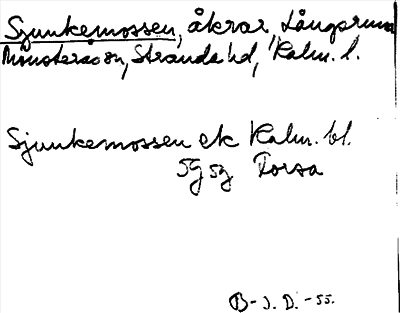 Sjunkemossen, åkrar, Långarum
Mönsterås sn, Stranda hd, Kalm. l.
Sjunkemossen ek Kalm. bl.
5G 5g Torsa
B-J. D. -55.